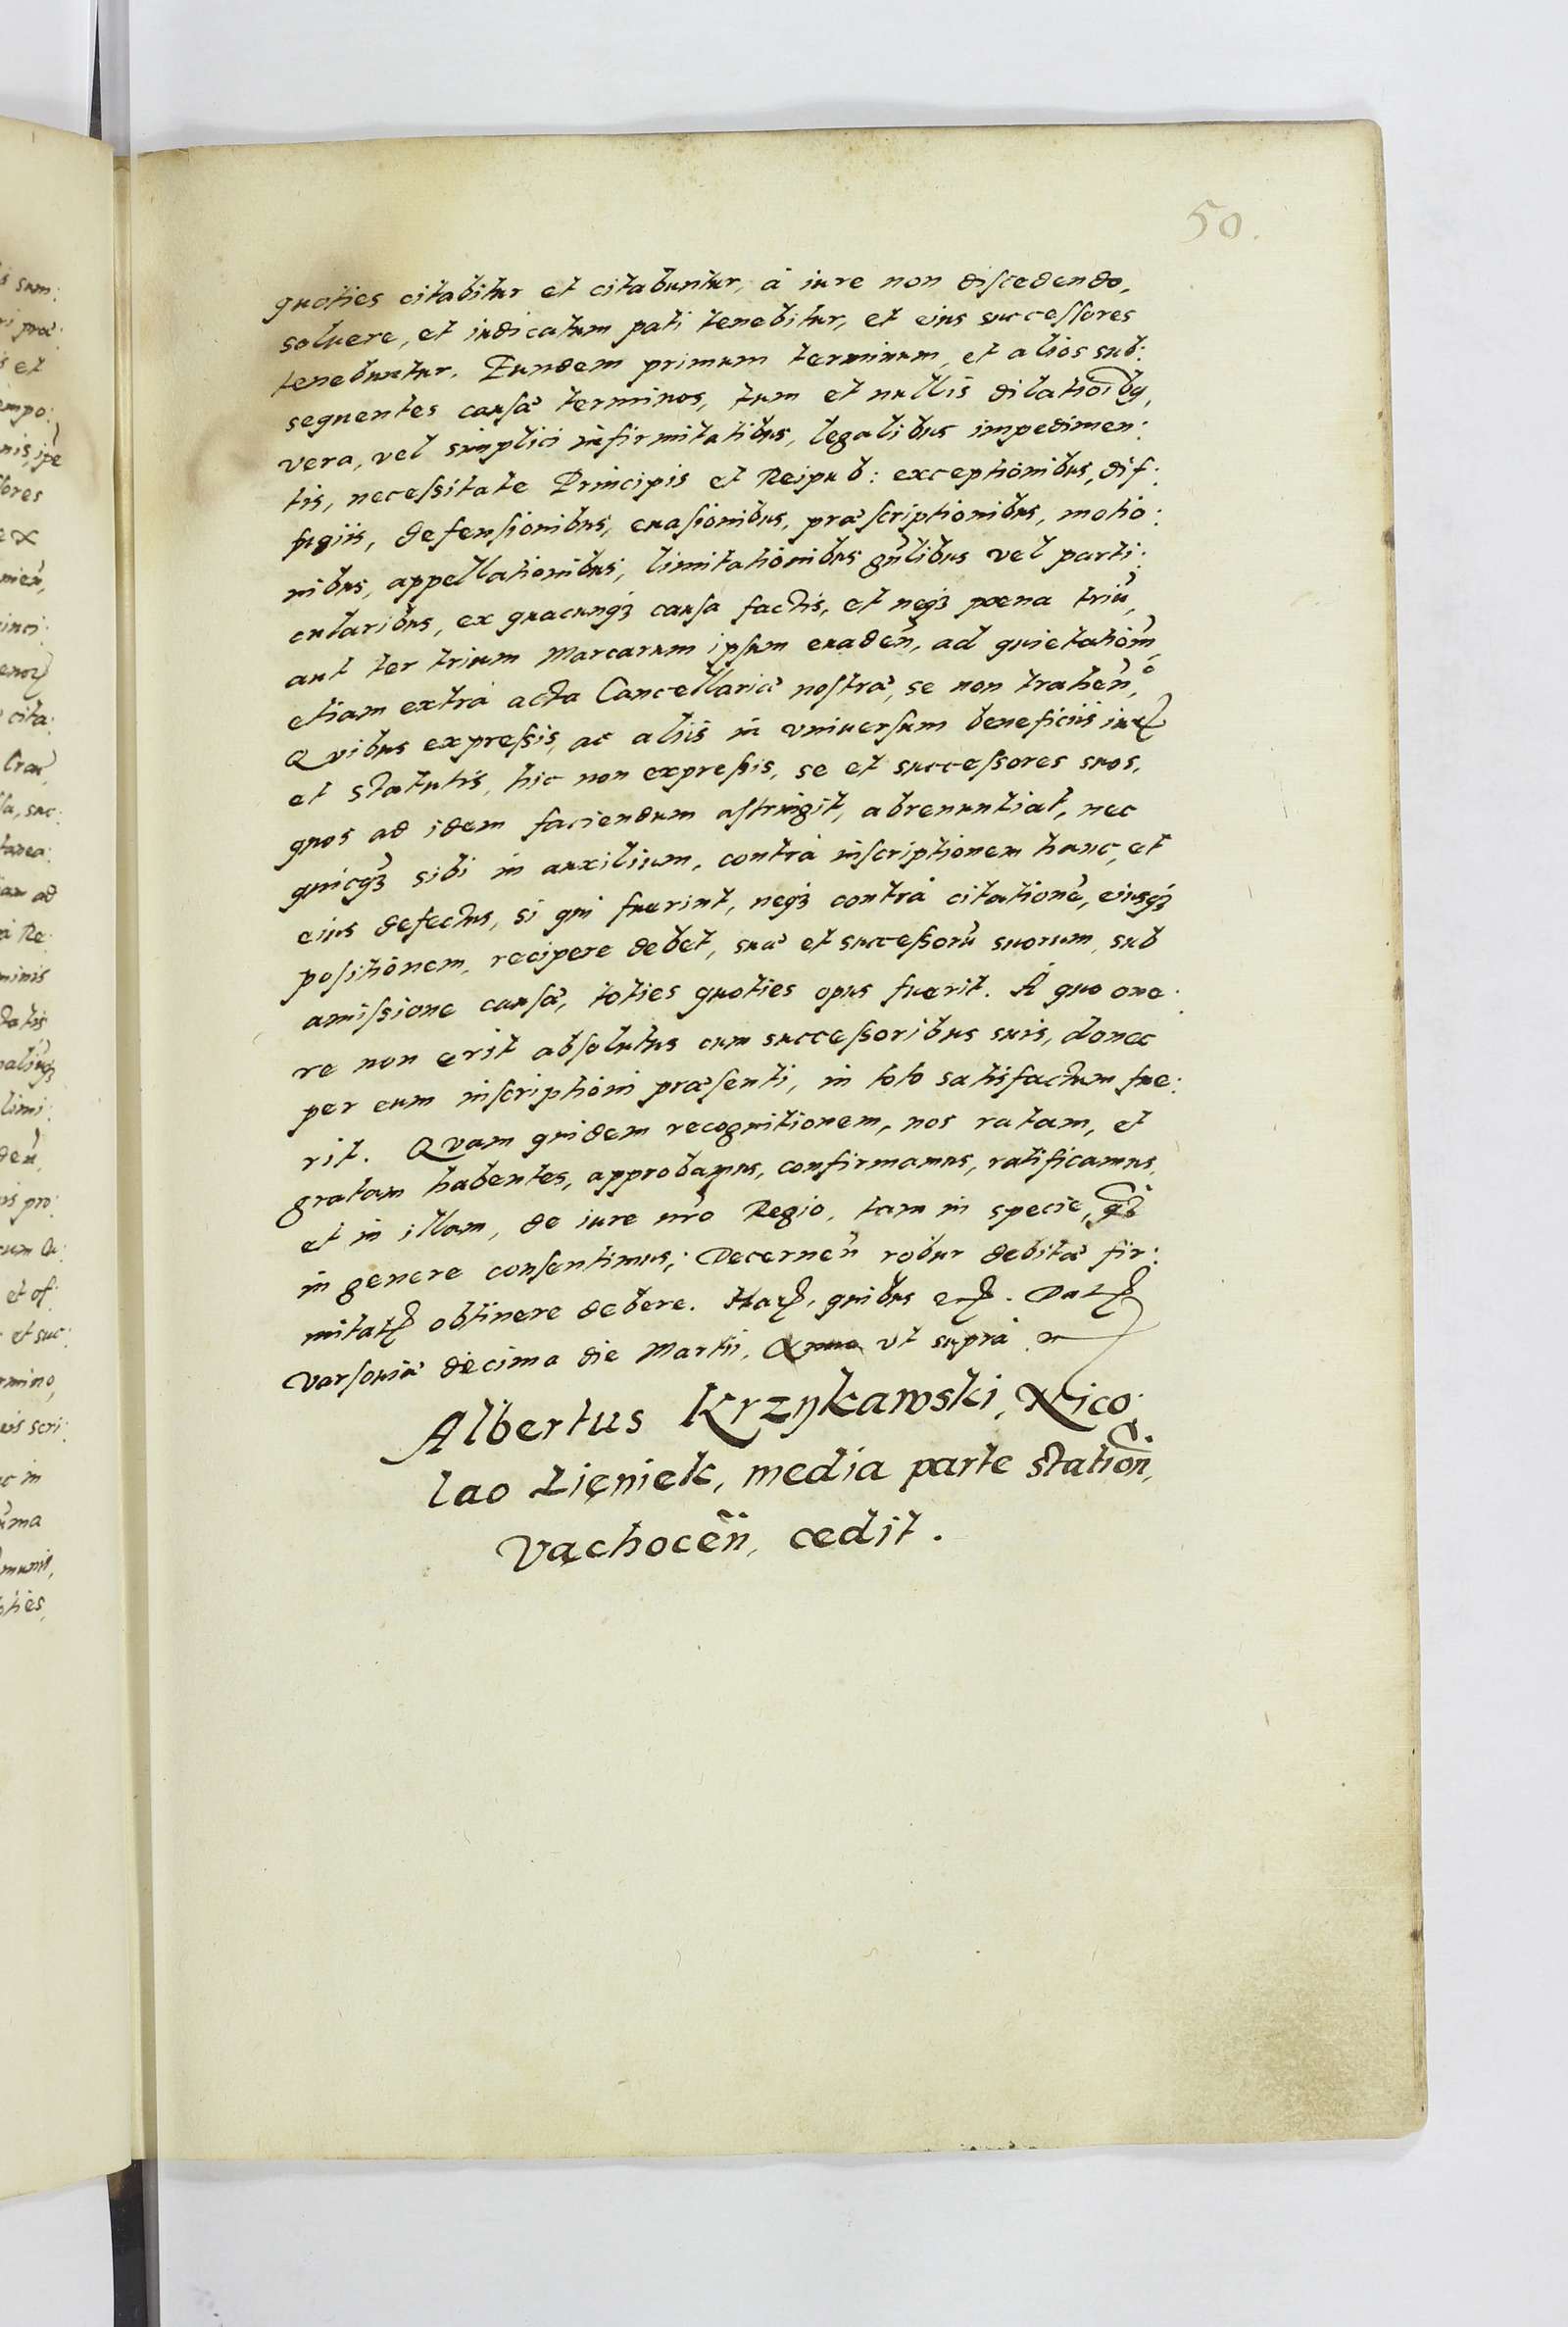 50.
quoties citabitur et citabuntur, à iure non discedendo,
soluere, et iudicatum pati tenebitur, et eius successores
tenebuntur. Eundem primum terminum, et alios sub:
sequentes causæ terminos, tum et nullis dilatioĩbꝯ,
vera, vel simplici infirmitatibus, legalibus impedimen:
tis, necessitate Principis et Reipub: exceptionibus, dif:
fugiis, defensionibus, euasionibus, præscriptionibus, motio:
nibus, appellationibus, limitationibus gñlibus vel parti:
cularibus, ex quacunqꝫ causa factis, et neqꝫ pœna triũ,
aut ter trium Marcarum ipsum euadeñ, ad quietatiom̃,
etiam extrà acta Cancellariæ nostræ, se non traheñ.
Quibus expressis, ac aliis in vniuersum beneficiis iurꝭ
et statutis, hic non expressis, se et successores suos,
quos ad idem faciendum astringit, abrenuntiat, nec
quicqꝫ sibi in auxilium, contrà inscriptionem hanc, et
eius defectus, si qui fuerint, neqꝫ contrà citationẽ, eiusqꝫ
positionem, recipere debet, suæ et successorũ suorum, sub
amissione causæ, toties quoties opus fuerit. À quo one:
re non erit absolutus cum successoribus suis, donec
per eum inscriptioni præsenti, in toto satisfactum fue:
rit. Quam quidem recognitionem, nos ratam, et
gratam habentes, approbamus, confirmamus, ratificamus,
et in illam, de iure nr̃o Regio, tam in specie, qꝫ̃
in genere consentimus; Decerneñ robur debitæ fir:
mitatꝭ obtinere debere. Harꝭ, quibus etꝭ. Datꝭ
Varsouiæ decima die Martii, Anno vt suprà
Albertus Krzykawski, Nico:
lao Lięniek, media parte stationĩ,
Vąchoceñ, cedit.
sum:
et
empo:
ipẽ
ex
cita:
suc:
ad
Re
minis
limi:
pro:
et of:
et suc:
rmino,
scri:
in